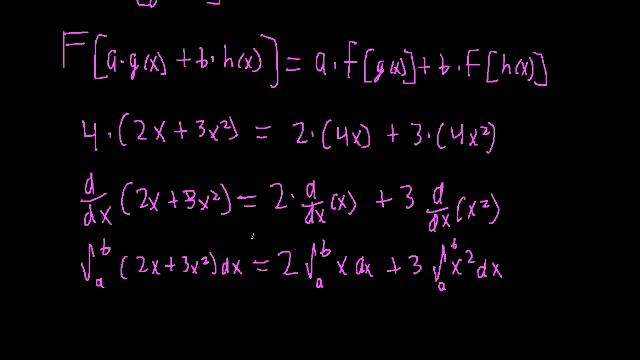 F[a·g(x) + b·h(x)] = a·F[g(x)] + b·F[h(x)]
4·(2x + 3x²) = 2·(4x) + 3·(4x²)
d/dx (2x + 3x²) = 2·d/dx (x) + 3 d/dx (x²)
∫ₐᵇ (2x + 3x²) dx = 2 ∫ₐᵇ x dx + 3 ∫ₐᵇ x² dx